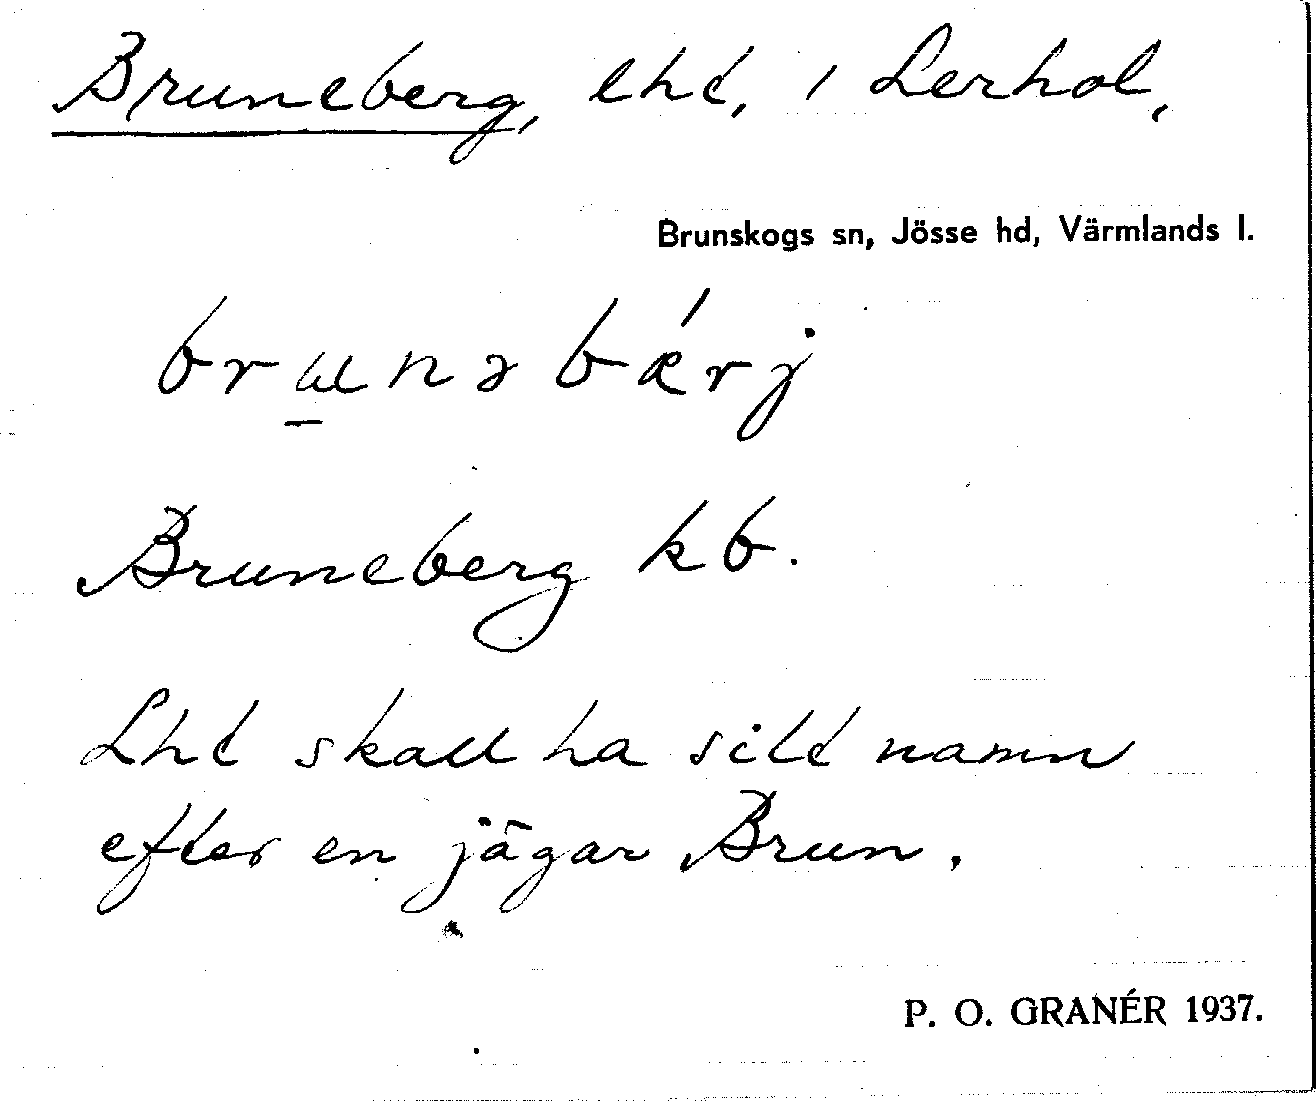 Bruneberg, lht, i Lerhol,
Brunskogs sn, Jösse hd, Värmlands l.
brunəbǽrj
Bruneberg kb.
Lht skall ha sitt namn
efter en jägar Brun.
P. O. GRANÉR 1937.